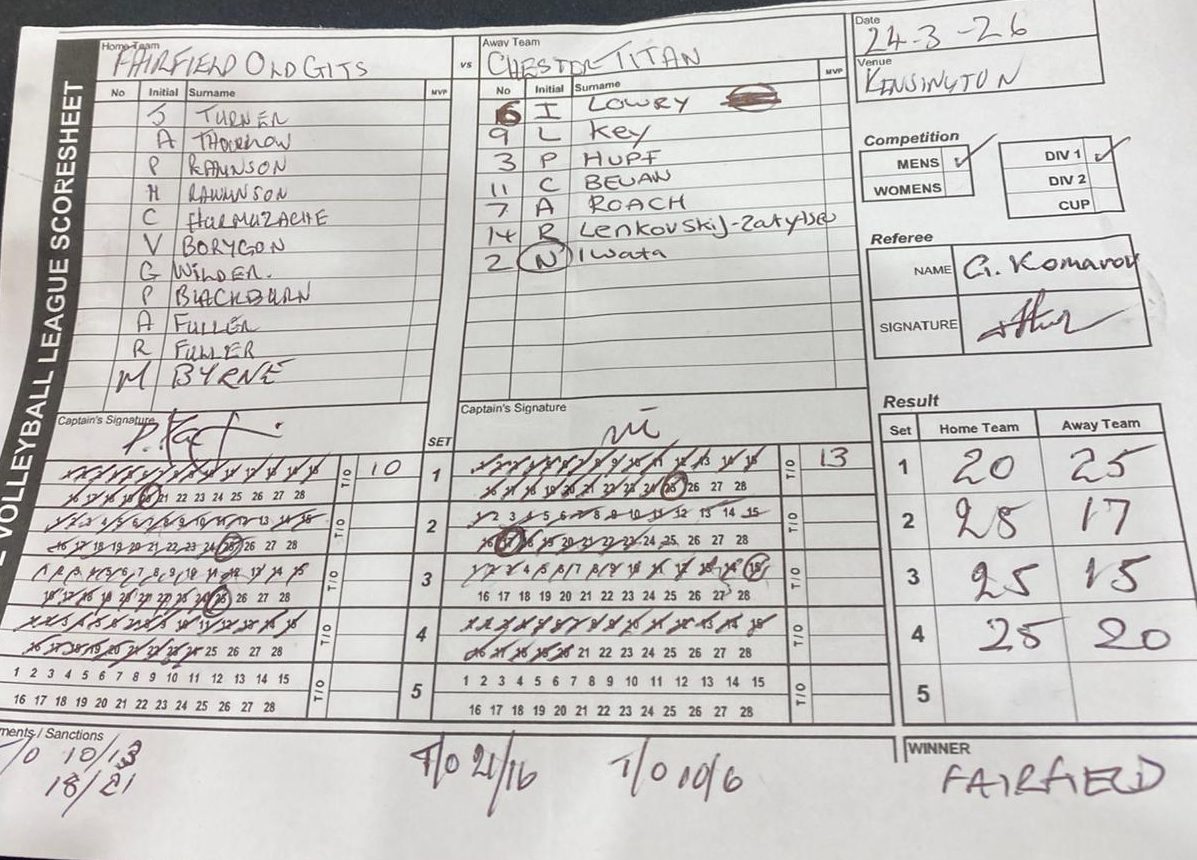 VOLLEYBALL LEAGUE SCORESHEET
Home Team
FAIRFIELD OLD GITS
vs
Away Team
CHESTER TITAN
Date
24-3-26
Venue
KENSINGTON
No Initial Surname MVP
J TURNER
A THORROW
P RAWNSON
H RAWNSON
C HARMUZACHE
V BORYGON
G WILDER.
P BLACKBURN
A FULLER
R FULLER
M BYRNE
No Initial Surname MVP
6 I LOWRY
9 L Key
3 P HUPF
11 C BEVAN
7 A ROACH
14 R
2 N Iwata
Competition
MENS ✓
WOMENS
DIV 1 ✓
DIV 2
CUP
Referee
NAME G. Komarov
SIGNATURE
Captain's Signature
SET
Captain's Signature
T/O 10
1
T/O 13
16 17 18 19 20 21 22 23 24 25 26 27 28
16 17 18 19 20 21 22 23 24 25 26 27 28
1 2 3 4 5 6 7 8 9 10 11 12 13 14 15
T/O
2
1 2 3 4 5 6 7 8 9 10 11 12 13 14 15
T/O
16 17 18 19 20 21 22 23 24 25 26 27 28
16 17 18 19 20 21 22 23 24 25 26 27 28
1 2 3 4 5 6 7 8 9 10 11 12 13 14 15
T/O
3
1 2 3 4 5 6 7 8 9 10 11 12 13 14 15
T/O
16 17 18 19 20 21 22 23 24 25 26 27 28
16 17 18 19 20 21 22 23 24 25 26 27 28
T/O
4
T/O
16 17 18 19 20 21 22 23 24 25 26 27 28
16 17 18 19 20 21 22 23 24 25 26 27 28
1 2 3 4 5 6 7 8 9 10 11 12 13 14 15
T/O
5
1 2 3 4 5 6 7 8 9 10 11 12 13 14 15
T/O
16 17 18 19 20 21 22 23 24 25 26 27 28
16 17 18 19 20 21 22 23 24 25 26 27 28
Result
Set Home Team Away Team
1 20 25
2 25 17
3 25 15
4 25 20
5
ments / Sanctions
T/O 10/13
18/21
T/O 21/16
T/O 10/6
WINNER
FAIRFIELD